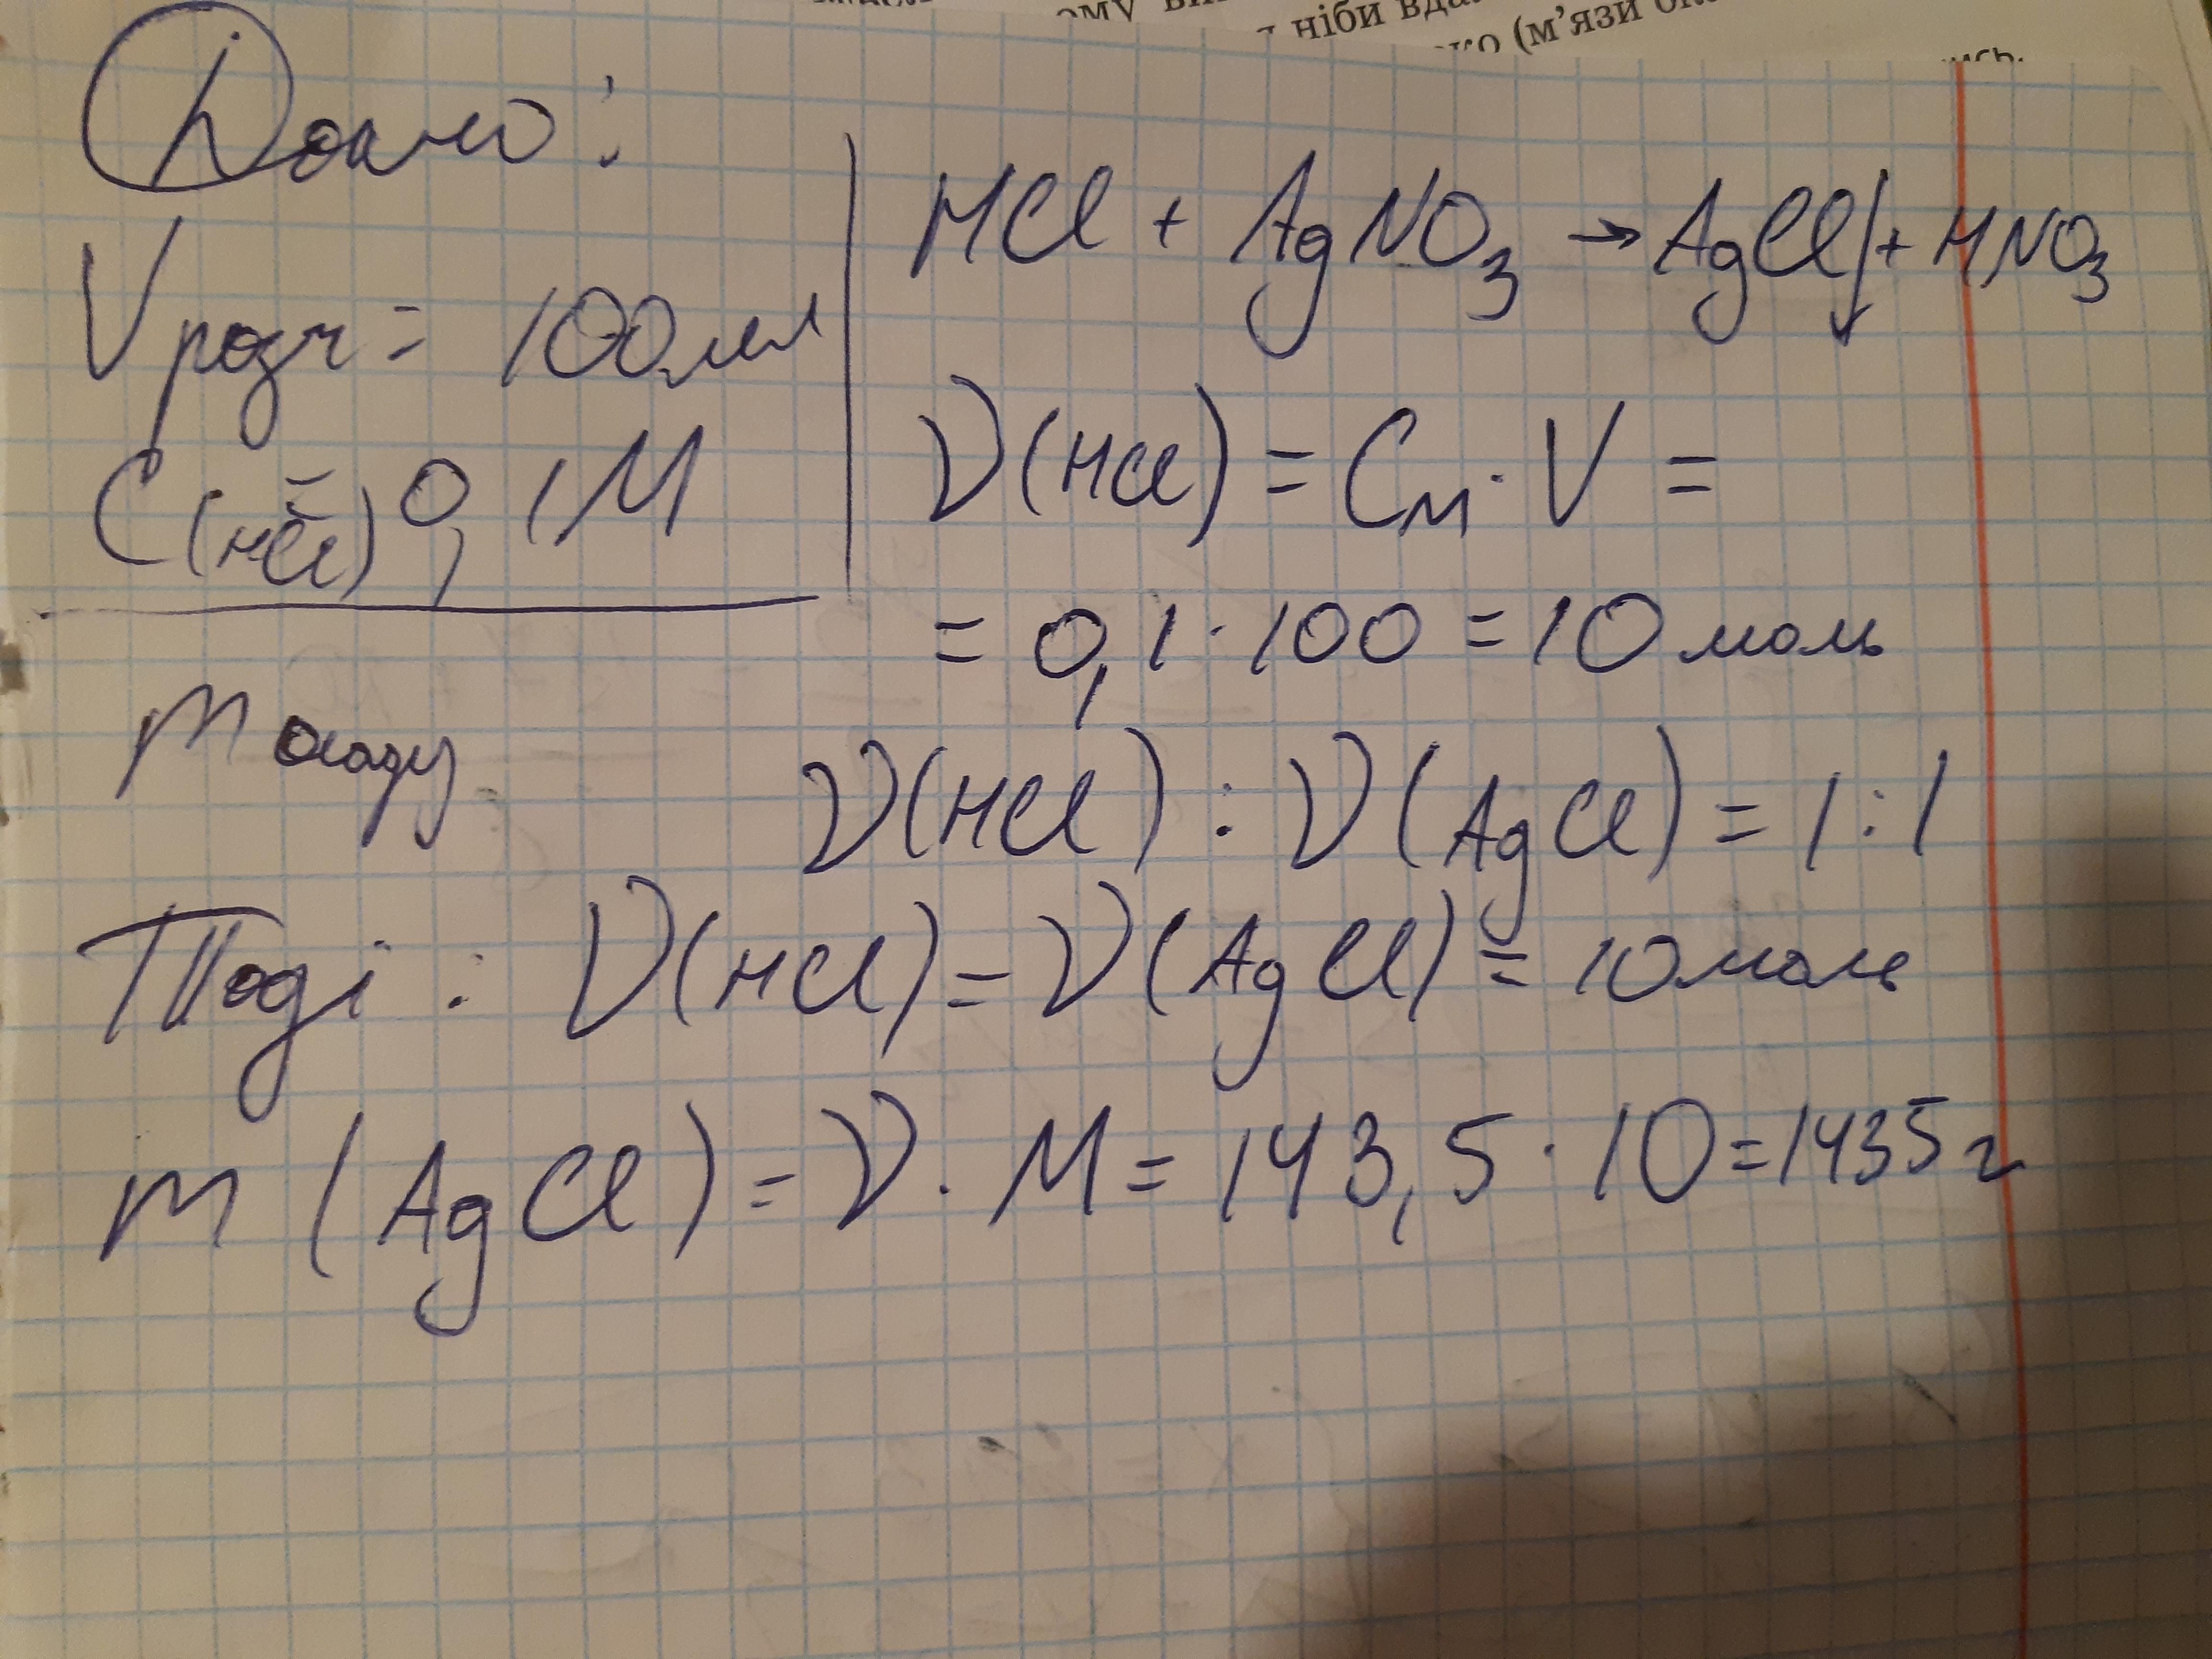 ому
ніби
(м'язи
ись.
Дано:
Vрозч = 100мл
C(HCl) = 0,1M
m осаду
HCl + AgNO3 → AgCl↓ + HNO3
ν(HCl) = CM · V =
= 0,1 · 100 = 10 моль
ν(HCl) : ν(AgCl) = 1:1
Тоді : ν(HCl) = ν(AgCl) = 10 моль
m (AgCl) = ν · M = 143,5 · 10 = 1435 г